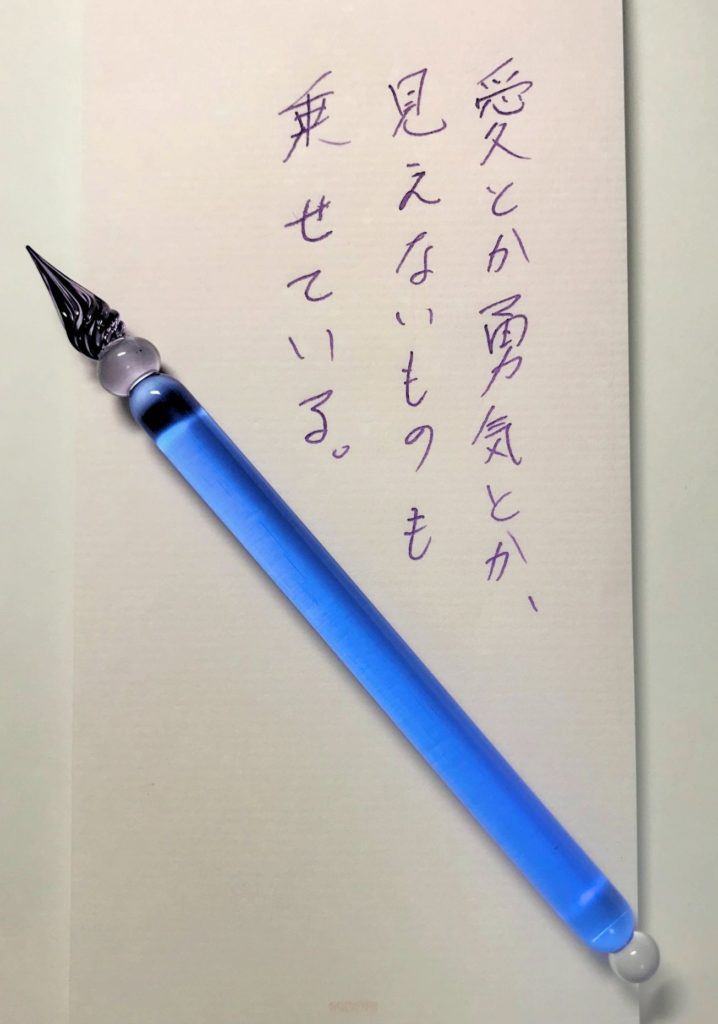 愛とか勇気とか、
見えないものも
乗せている。